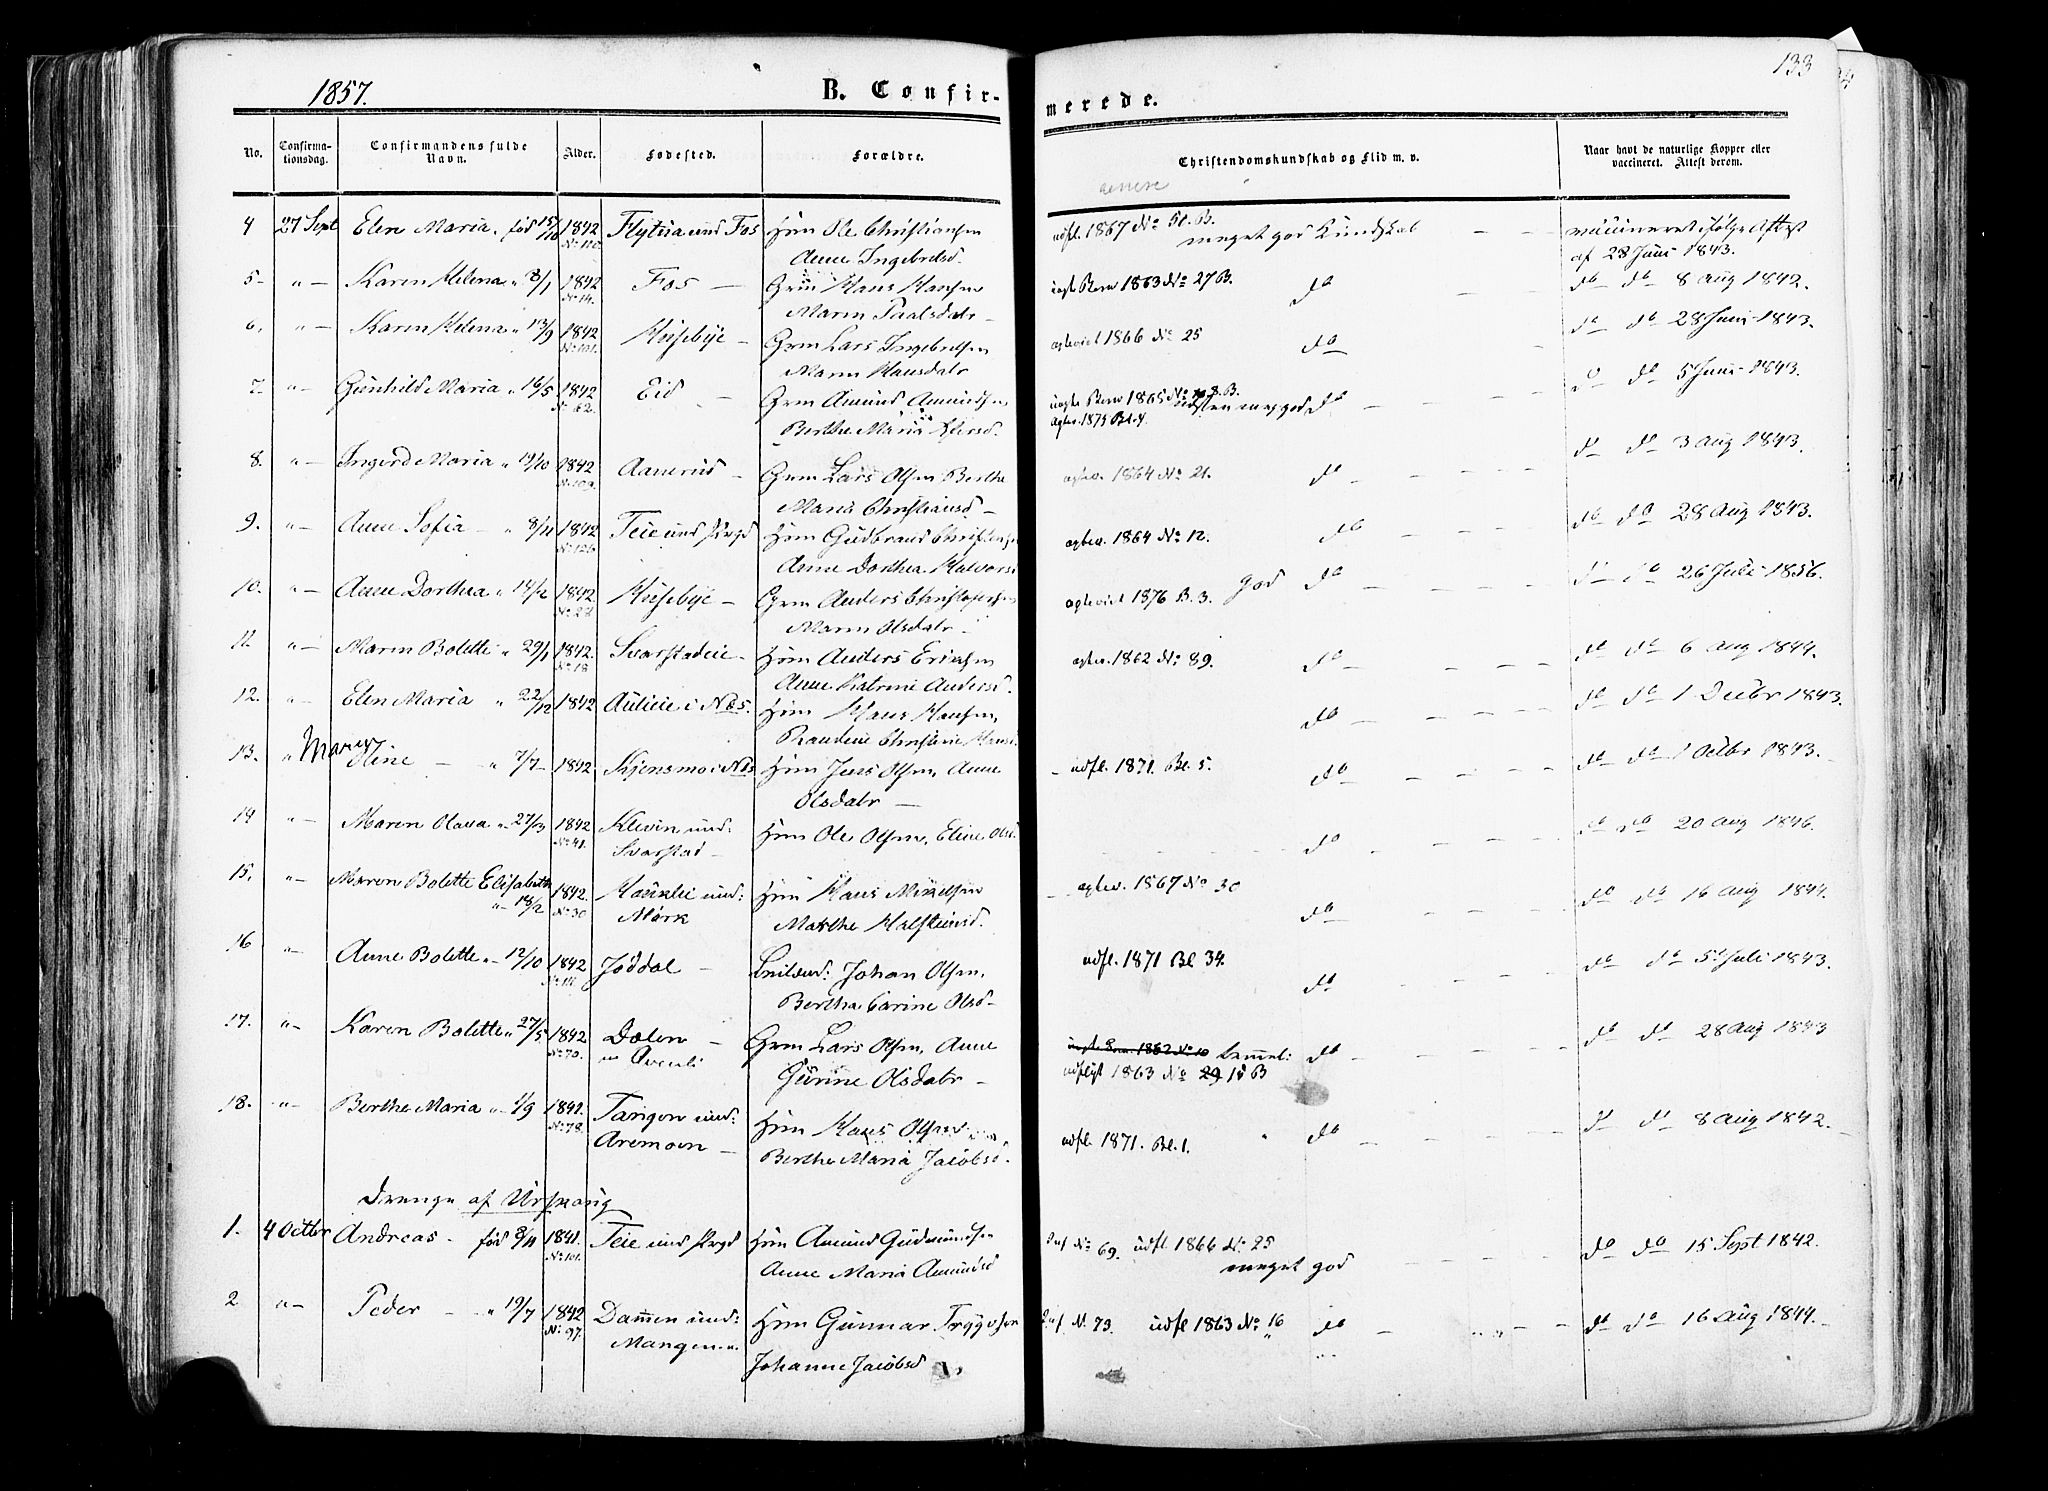 133
1857.
B. Confir-
merede.
No.
Confirma-
tionsdag.
Confirmandens fulde
Navn.
Alder.
Fødested.
Forældre.
Christendomskundskab og Flid m. v.
Naar havt de naturlige Kopper eller
vaccineret. Attest derom.
4 27 Sept Elen Maria. fød 15/10 1842 Flytua und Fos Hsm Ole Christiansen udfl. 1867 No 51. B. meget god Kundskab vaccineret ifølge Attest
No 110. Anne Ingebretsd. af 28 Juni 1843.
5 " Karen Helena " 8/1 1842 Fos Grm Hans Hansen 1863 No 27 B. do do do 8 Aug 1842.
No 14. Maren Paalsdatr
6. " Karen Helena " 13/9 1842 Husebye Grm Lars Ingebretsen ægteviet 1866 No 25 do do do 28 Juni 1843.
No 101. Maren Hansdatr
7. " Gunhild Maria " 16/5 1842 Eid Grm Amund Amundsen 1865 No B. do do do 5 Juni 1843.
No 62. Berthe Maria ægtev. 1875 Bl. 4.
8. " Ingerd Maria " 19/10 1842 Aanerud Grm Lars Olsen Berthe ægtev. 1864 No 21. do do do 3 Aug 1843.
No 109. Maria Christiansd
9. " Anne Sofia " 8/11 1842 Teie und Prgd Hsm Gudbrand Christensen ægtev. 1864 No 12. do do do 28 Aug 1843.
No 126 Anne Dorthea Halvorsd
10. " Anne Dorthea " 14/2 1842 Husebye Grm Anders Christophersen ægteviet 1876 B. 3. god do do do 26 Juli 1856.
No 27 Maren Olsdatr
11. " Maren Bolette " 29/1 1842. Svarstadeie Hsm Anders Ericksen ægtev. 1862 No 89. do do do 6 Aug 1844.
No 18. Anne Katrine Andersd.
12. " Elen Maria " 22/12 1842 Aulieie i Næs. Hsm Hans Hansen, do do do 1 Decbr 1843.
Randine Christine Hansd
13. " Maren Oline " 7/7 1842 Skjensmo i Næs Hsm Jens Olsen, Anne udfl. 1871. Bl. 5. do do do 1 Octbr 1843.
Olsdatr
14 " Maren Olava " 27/3 1842 Klevin und: Hsm Ole Olsen, Eline Olsd do do do 20 Aug 1846.
No 41. Svarstad
15. " Maren Bolette Elisabeth 1842. und: Hsm Hans Mikkelsen ægtev. 1867 No 30 do do do 16 Aug 1844.
" 18/2 No 30 Mørk Marthe Halfsteinsd.
16 " Anne Bolette " 12/10 1842 Jøddal Johan Olsen, udfl. 1871 Bl 34. do do do 5 Juli 1843.
Bertha Carine Olsd
17. " Karen Bolette " 27/5 1842 Dælen Grm Lars Olsen, Anne do do do 28 Aug 1843
No 70. Gurine Olsdatr udfligt 1863 No 29 15 B
18. " Berthe Maria " 1/9 1841. Tangen und: Hsm Hans Olsen udfl. 1871. Bl. 1. do do do 8 Aug 1842.
No 78. Aremoen Berthe Maria Jacobsd.
Drenge af Urskoug
1. 4 Octbr Andreas fød 8/11 1841. Teie und Prgd Hsm Amund Gudmundsen No 69. udfl 1866 No 25 meget god do do 15 Sept 1842.
No 101. Anne Maria Amundsd
2 " Peder " 19/7 1842 Damen und: Hsm Gunnar Tryggvsen N. 73. udfl 1863 No 16 do do do 16 Aug 1844.
No 97. Mangen Johanne Jacobsd